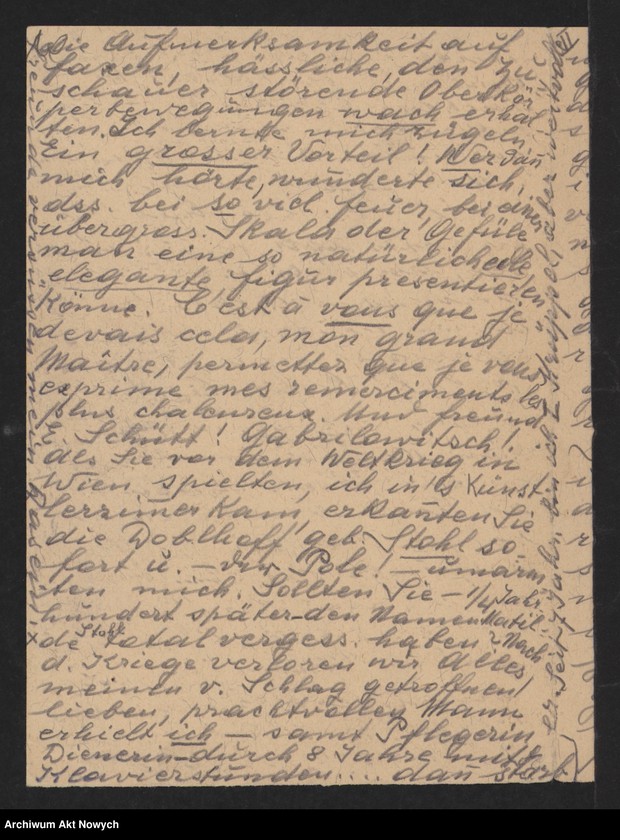 Die Aufmerksamkeit auf
faxen, hässliche, den zu
schauer störende Oberkör
perbewegungen wach erhal
ten. Ich lernte mich zügeln.
Ein grosser Vorteil! Wer
mich hörte, wunderte sich,
dss. bei so viel feuer, bei einer
übergross. Skala der Gefüle
man eine so natürliche edle
elegante figur presentieren
könne. C'est à vous que je
devais cela, mon grand
Maître, permettez que je vous
exprime mes remerciments les
plus chaleureux. Und freund
E. Schütt! Gabrilowitsch!
als Sie vor dem Weltkrieg in
Wien spielten, ich in's Künst-
lerzimer kam, erkanten Sie
die Doblhoff geb. Stohl so-
fort u. – der Pole! – umarm
ten mich. Sollten Sie – 1/4 Jahr
hundert später – den Namen Matil
de Stohl total vergess. haben? Nach
d. Kriege verloren wir Alles
meinen v. Schlag getroffnen
lieben, prachtvollen Mann
erhielt ich – samt Pflegerin
Dienerin – durch 8 Jahre mit
Klavierstunden.... dan starb
er. Seit 7 Jahr. bin ich Krüppel, aber
Archiwum Akt Nowych